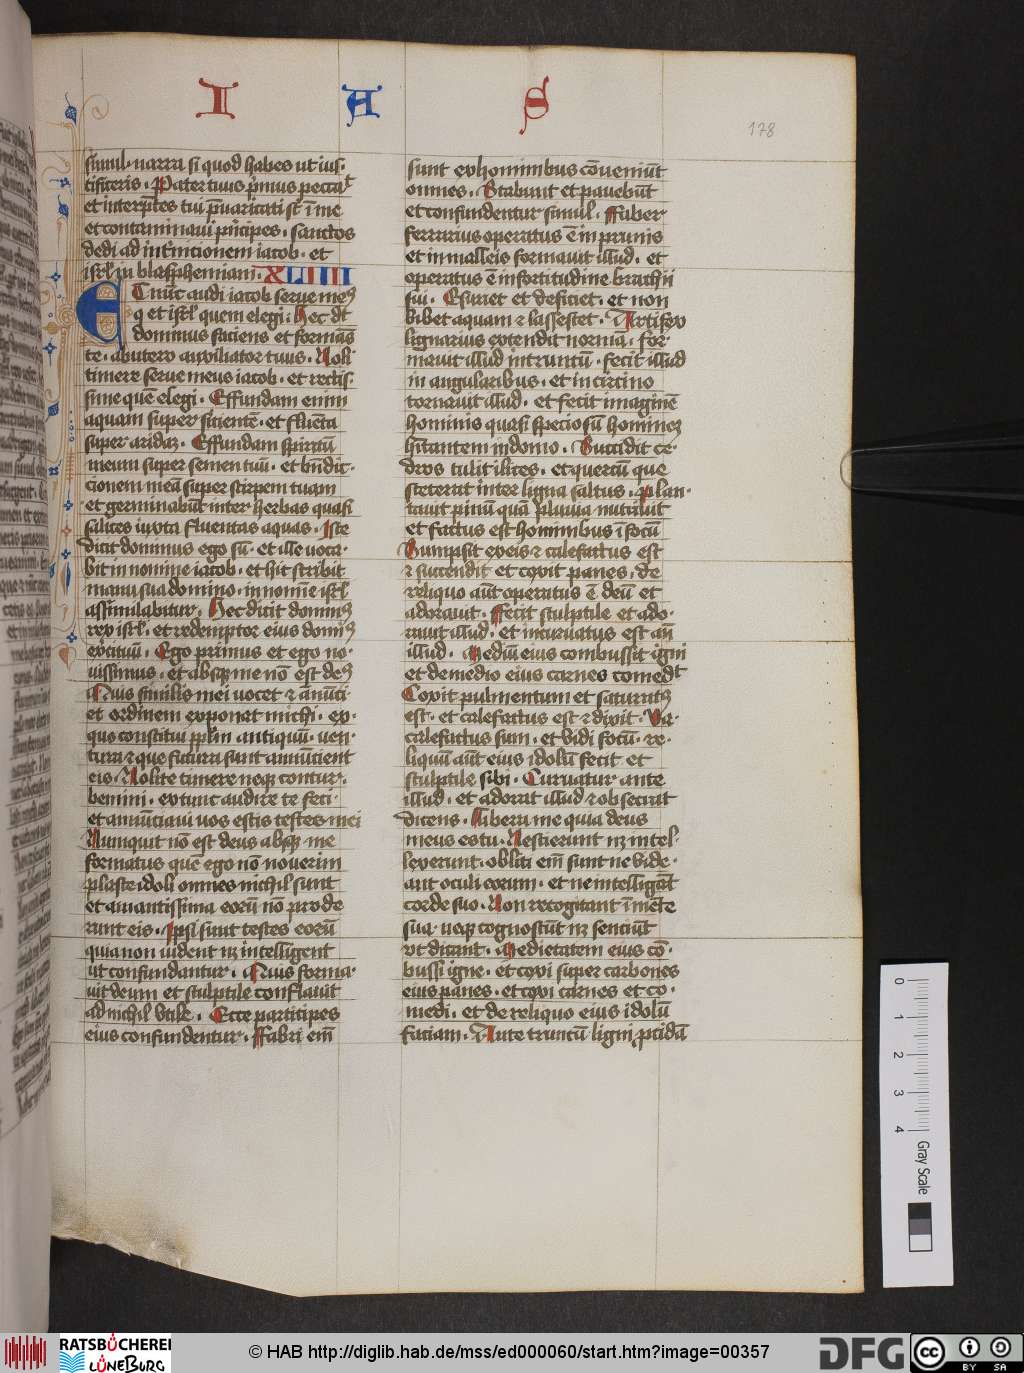 I A S
178
simul · narra si quod habes ut ius·
tificeris · Pater tuus p̄mus peccāt
et interp̄tes tui p̄uaricati st̄ ī me
et contaminaui p̄ncipes · sanctos
dedi ad int̄nicionem iacob · et
isrl̄ in blasphemiam · XLIIII
Et nūc audi iacob serue meꝯ
q et isrl̄ quem elegi · Hec dt
dominus faciens et formās
te · ab utero auxiliator tuus · Noli
timere serue meus iacob · et rectis·
sime quē elegi · Effundam enim
aquam super sicientē · et fluēta
super aridaꝫ · Effundam spiritū
meum super semen tuū · et bn̄dic·
cionem meā super stirpem tuam
et germinabūt inter herbas quasi
salices iuxta fluentas aquas · Iste
dicit dominus ego sū · et ille uoca·
bit in nomine iacob · et hic scribit
manu sua domino · in nomīe isrl̄
assimilabitur · Hec dicit dominꝯ
rex isrl̄ · et redemptor eius domīꝯ
ex̄cituū · Ego primus et ego no·
uissimus · et absqꝫ me nō est deꝯ
Quis similis mei uocet ⁊ an̄ūci
et ordinem exponat michi · ex·
quo constitui pplm antiquū · uen·
tura ⁊ que futura sunt annūcient
eis · Nolite timere neqꝫ contur·
bemini · ex tunc audire te feci
et annūciaui uos estis testes mei
Numquit nō est deus absqꝫ me
formatus quē ego nō nouerim
plaste idoli omnes nichil sunt
et amantissima eorū nō prode
runt eis · Ipsi sunt testes eorū
quia non uident nꝫ intelligent
ut confundantur · Quis forma·
uit deum et sculptile conflauit
ad nichil vtile · Ecce participes
eius confundentur · Fabri em̄
sunt ex hominibus cōueniūt
omnes · Stabunt et pauebūt
et confundentur simul · Faber
ferrarius operatus ē in prunis
et in malleis formauit illud · et
operatus ē in fortitudine brachii
sui · Esuriet et deficiet · et non
bibet aquam ⁊ lassescet · Artifex
lignarius extendit norma · for·
mauit illud in runcū · fecit illud
in angularibus · et in circino
tornauit illud · et fecit imaginē
hominis quasi speciosū hominez
hītantem in domo · Succidit ce·
dros tulit ilices · et quercū que
steterat inter ligna saltus · plan·
tauit pinū quā pluuia nutriuit
et factus est hominibus ī focū
Sumpsit ex eis ⁊ calefactus est
⁊ succendit et coxit panes · de
reliquo aūt operatus ē deū et
adorauit · Fecit sculptile et ado·
rauit illud · et incuruatus est an̄
illud · Mediū eius combussit igni
et de medio eius carnes comedt
Coxit pulmentum et saturatꝯ
est · et calefactus est ⁊ dixit · Va·
calefactus sum · et vidi focū · re·
liquū aūt eius idolū fecit et
sculptile sibi · Curuatur ante
illud · et adorat illud ⁊ obsecrat
dicens · Libera me quia deus
meus es tu · Nescierunt nꝫ intel·
lexerunt · obliti em̄ sunt ne vide·
ant oculi eorum · et ne intelligāt
corde suo · Non recogitant ī mēte
sua neqꝫ cognoscūt nꝫ senciūt
vt dicant · Medietatem eius cō·
bussi igne · et coxi super carbones
eius panes · et coxi carnes et co·
medi · et de reliquo eius idolū
faciam · Ante truncū ligni p̄cidā
0 1 2 3 4 Gray Scale
RATSBÜCHEREI LÜNEBURG
© HAB http://diglib.hab.de/mss/ed000060/start.htm?image=00357
DFG
cc BY SA